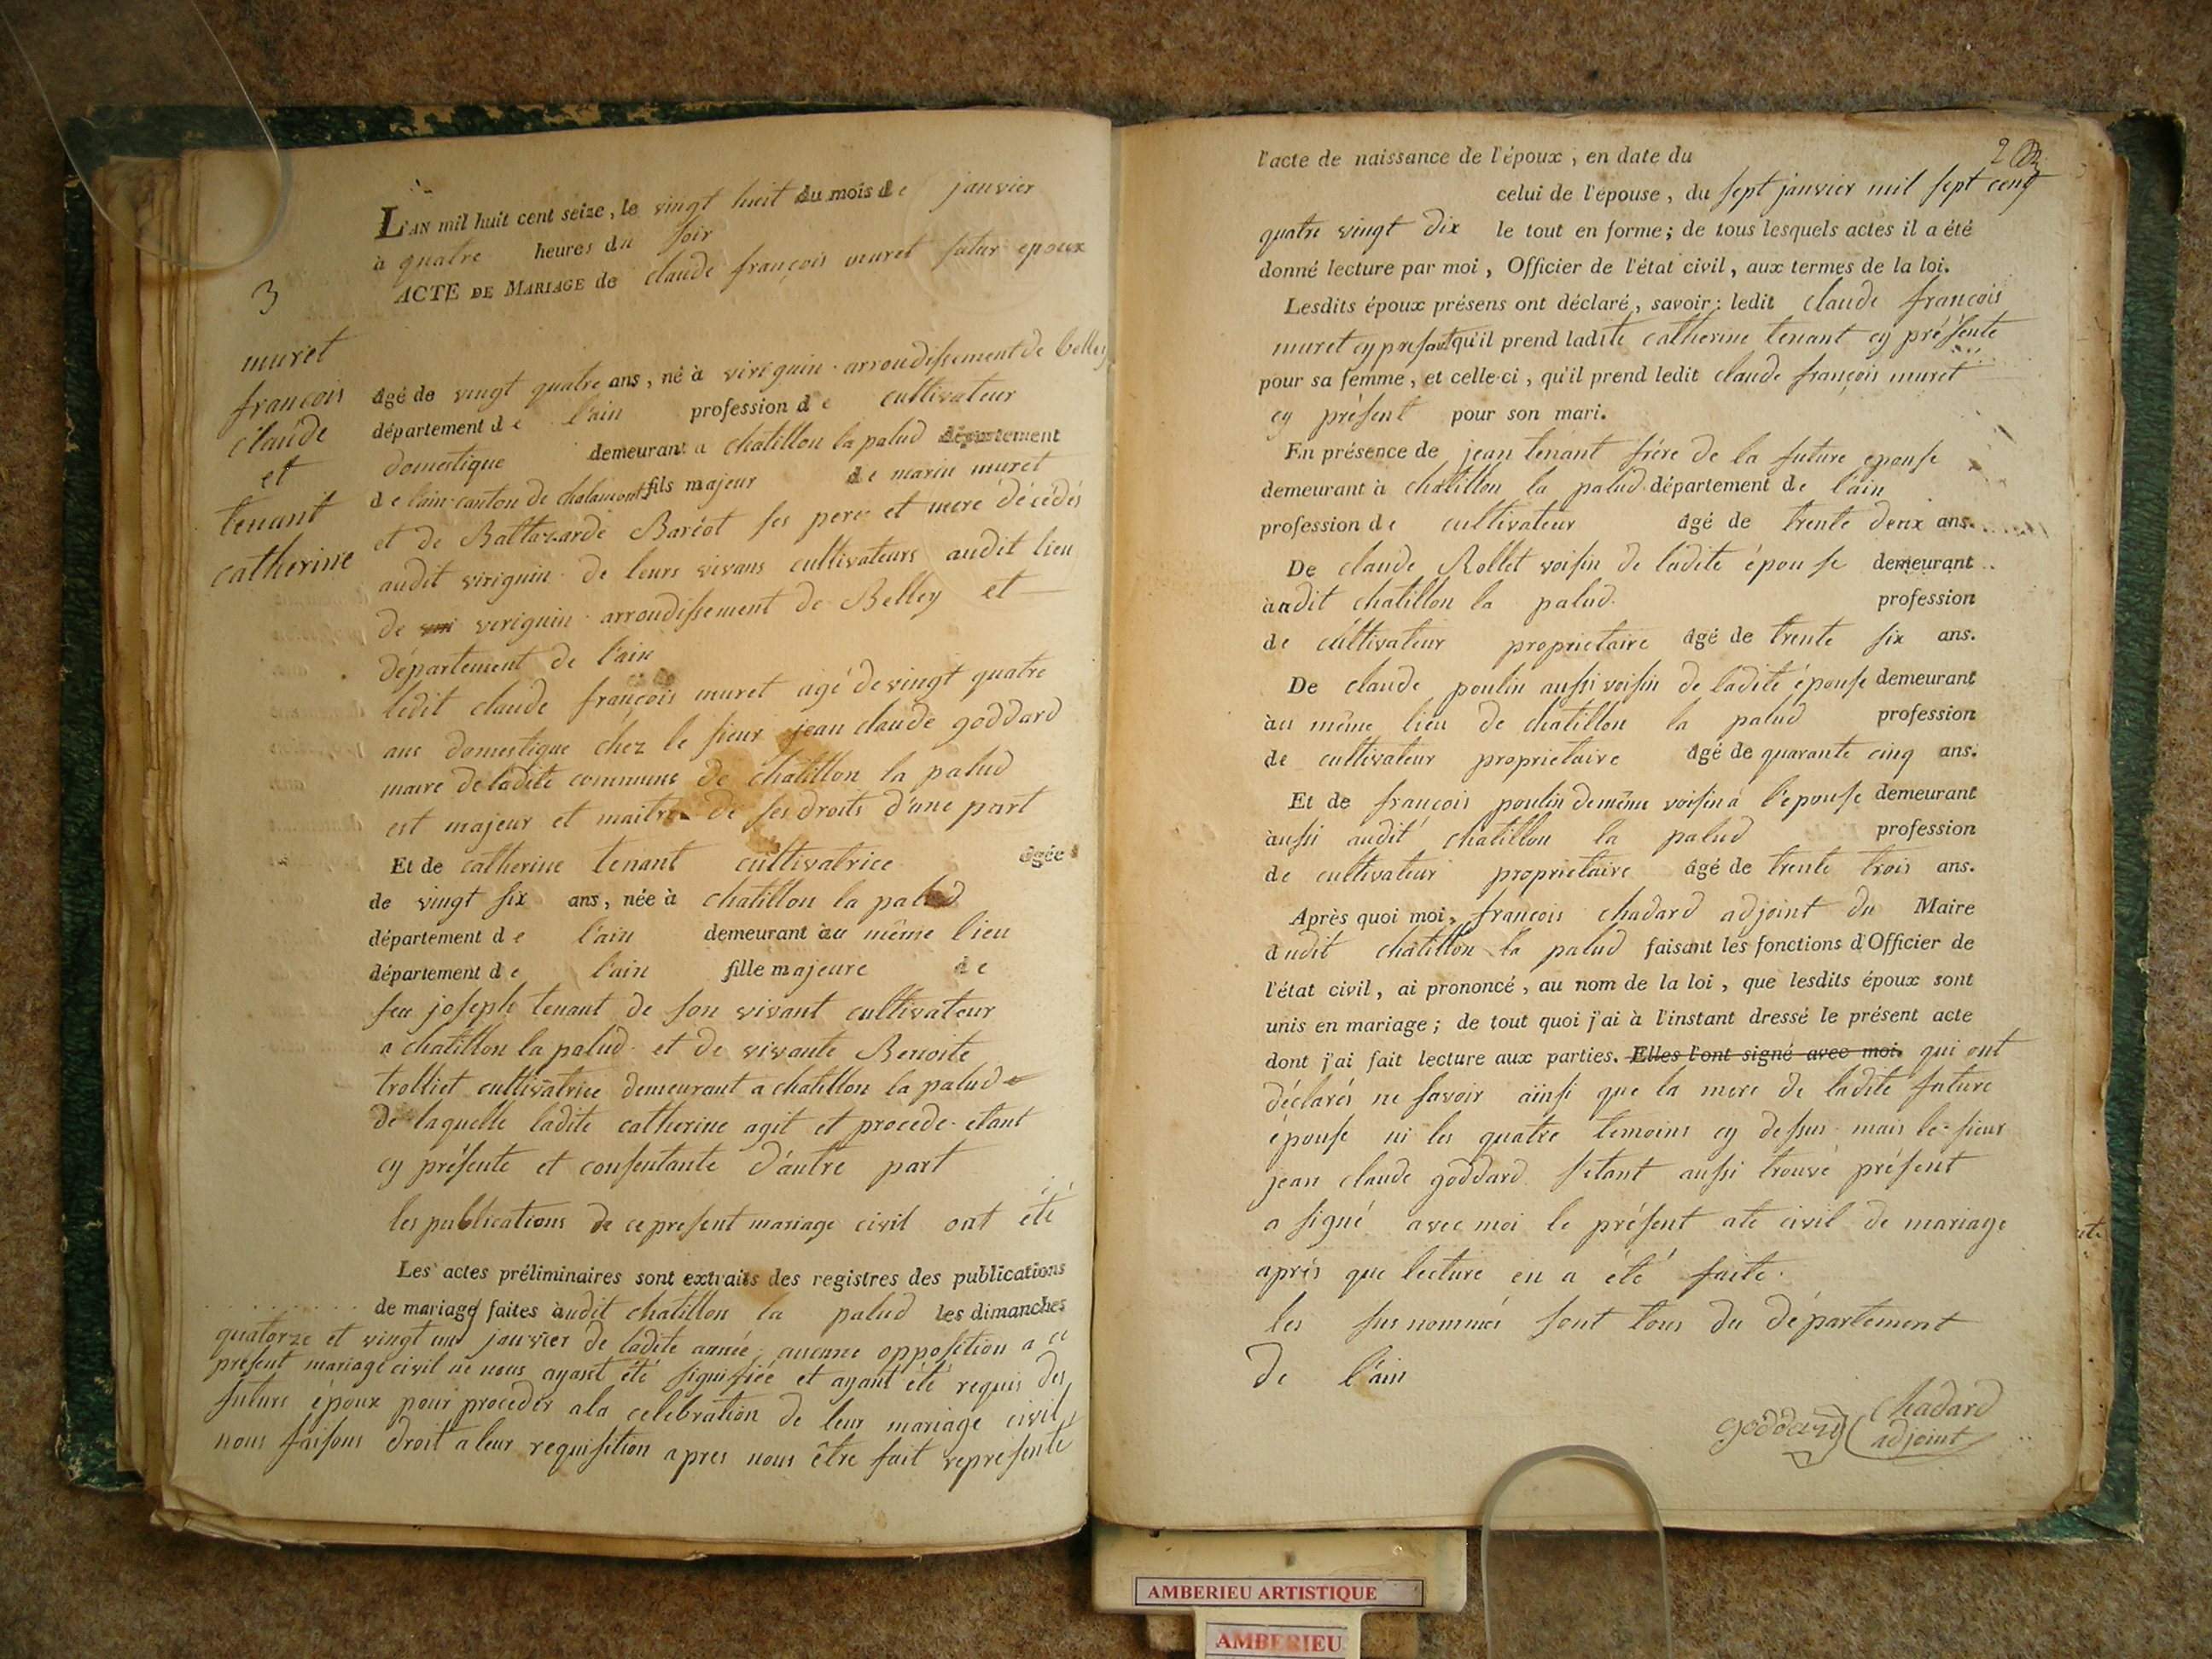 L'AN mil huit cent seize, le vingt huit du mois de janvier
à quatre heures du soir
ACTE DE MARIAGE de claude françois muret futur epoux
3
muret
françois
claude
et
tenant
catherine
âgé de vingt quatre ans, né à viriguin arrondissement de belley
département de l'ain profession de cultivateur
domestique demeurant a chatillon la palud département
de l'ain canton de chalamont fils majeur de marin muret
et de Baltazarde Baréot ses pere et mere décédés
audit viriguin de leurs vivans cultivateurs audit lieu
de viriguin arrondissement de Belley et
département de l'ain
ledit claude françois muret agé de vingt quatre
ans domestique chez le sieur jean claude goddard
maire de ladite commune de chatillon la palud
est majeur et maitre de ses droits d'une part
Et de catherine tenant cultivatrice âgée
de vingt six ans, née à chatillon la palud
département de l'ain demeurant au même lieu
département de l'ain fille majeure de
feu joseph tenant de son vivant cultivateur
a chatillon la palud et de vivante Benoite
trolliet cultivatrice demeurant a chatillon la palud
de laquelle ladite catherine agit et procede etant
cy présente et consentante d'autre part
les publications de ce present mariage civil ont été
Les actes préliminaires sont extraits des registres des publications
de mariage faites audit chatillon la palud les dimanches
quatorze et vingt un janvier de ladite année aucune opposition a ce
present mariage civil ne nous ayant été signifiée et ayant été requis des
futurs époux pour proceder a la celebration de leur mariage civil
nous faisons droit a leur requisition apres nous être fait representé
2
l'acte de naissance de l'époux, en date du
celui de l'épouse, du sept janvier mil sept cent
quatre vingt dix le tout en forme; de tous lesquels actes il a été
donné lecture par moi, Officier de l'état civil, aux termes de la loi.
Lesdits époux présens ont déclaré, savoir: ledit claude françois
muret cy présent qu'il prend ladite catherine tenant cy présente
pour sa femme, et celle-ci, qu'il prend ledit claude françois muret
cy présent pour son mari.
En présence de jean tenant frére de la future epouse
demeurant à chatillon la palud département de l'ain
profession de cultivateur âgé de trente deux ans.
De claude Rollet voisin de ladite épouse demeurant
audit chatillon la palud profession
de cultivateur proprietaire âgé de trente six ans.
De claude poulin aussi voisin de ladite épouse demeurant
au même lieu de chatillon la palud profession
de cultivateur proprietaire âgé de quarante cinq ans.
Et de françois poulin de même voisin a l'épouse demeurant
aussi audit chatillon la palud profession
de cultivateur proprietaire âgé de trente trois ans.
Après quoi moi, françois chadard adjoint du Maire
dudit chatillon la palud faisant les fonctions d'Officier de
l'état civil, ai prononcé, au nom de la loi, que lesdits époux sont
unis en mariage; de tout quoi j'ai à l'instant dressé le présent acte
dont j'ai fait lecture aux parties. Elles l'ont signé avec moi. qui ont
déclarés ne savoir ainsi que la mere de ladite future
épouse ni les quatre temoins cy dessus mais le sieur
jean claude goddard s'etant aussi trouvé présent
a signé avec moi le présent ate civil de mariage
aprés que lecture en a été faite.
les sus nommés sont tous du département
de l'ain
goddard chadard
adjoint
AMBERIEU ARTISTIQUE
AMBERIEU